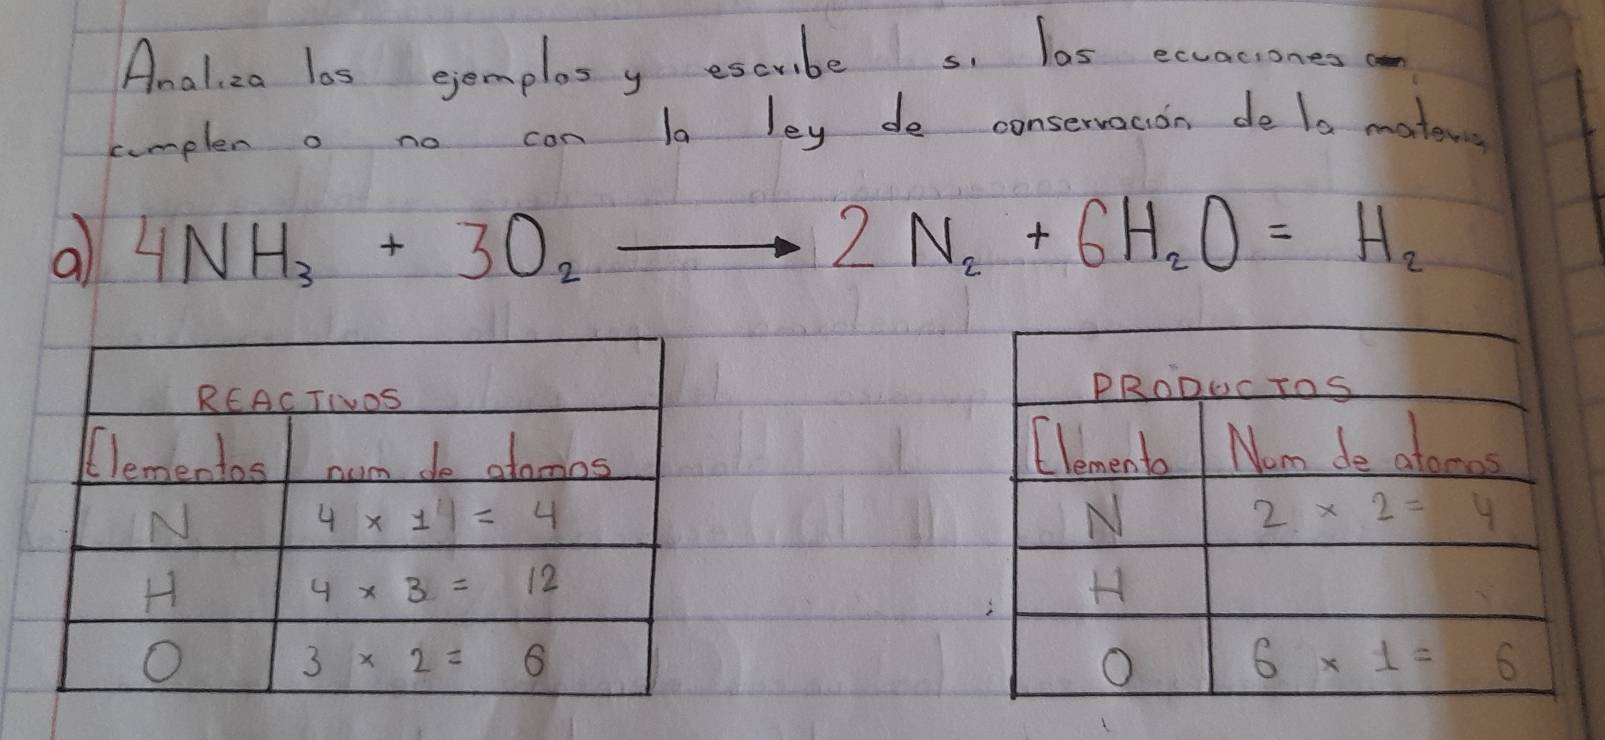 Analiza los ejemplos y escribe si las ecuaciones
cumplen o no con la ley de conservación de la materia
a) 4NH₃ + 3O₂ → 2 N₂ + 6H₂O = H₂
REACTIVOS
Elementos num de atomos
N 4 x 1 = 4
H 4 x 3 = 12
O 3 x 2 = 6
PRODUCTOS
Elemento Num de atomos
N 2 x 2 = 4
H
O 6 x 1 = 6